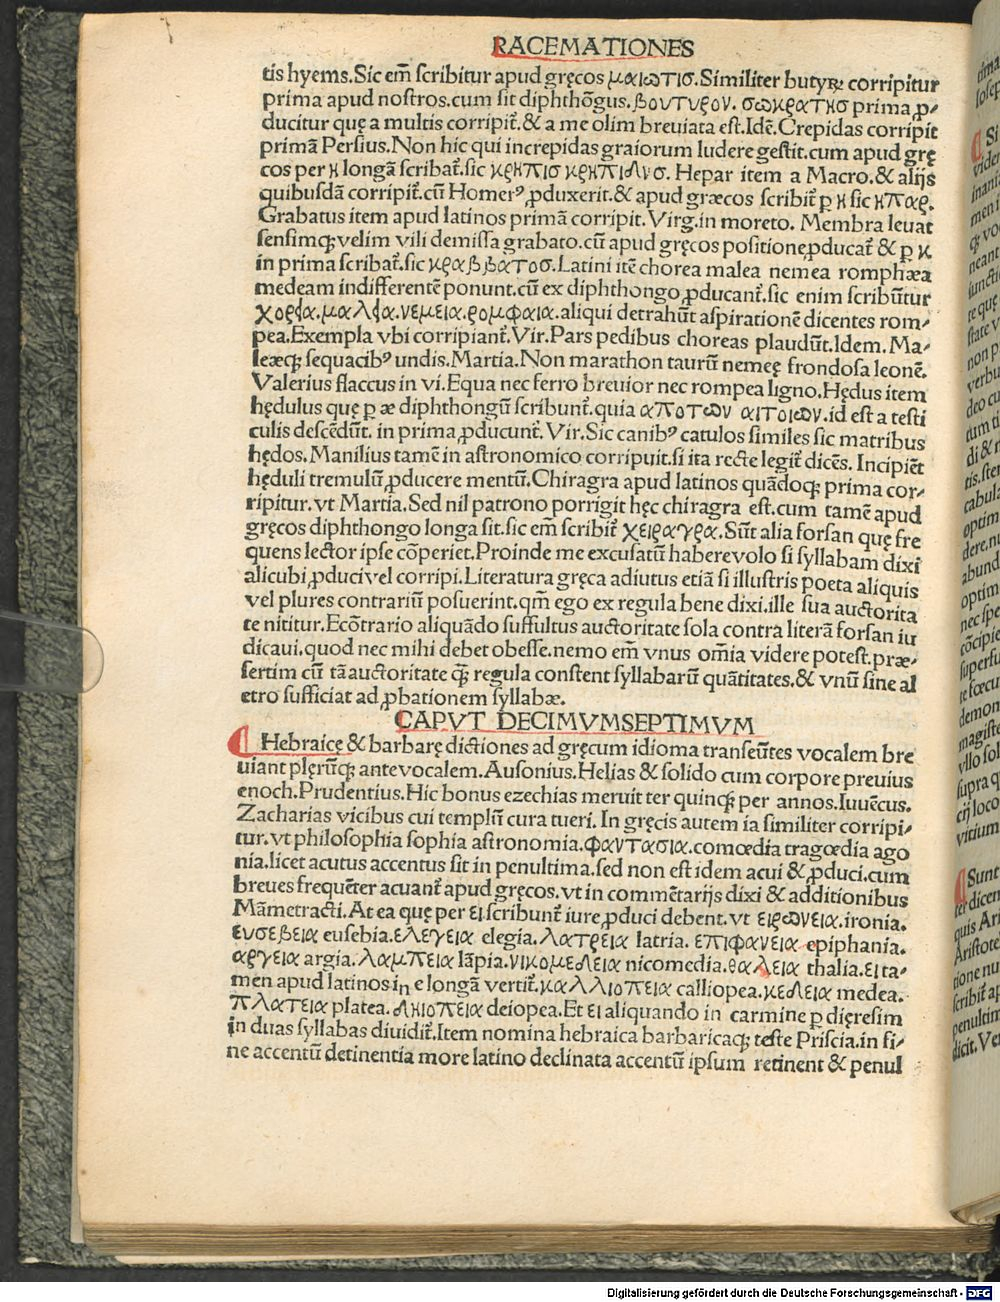 RACEMATIONES
tis hyems.Sic em̄ ſcribitur apud gręcos μαιωτισ.Similiter butyꝝ corripitur
prima apud noſtros.cum ſit diphthōgus.βουτυρον. σωκρατησ prima ꝓ⸗
ducitur quę a multis corripit᷑.& a me olim breuiata eſt.Idē.Crepidas corripit
primā Perſius.Non hic qui increpidas graiorum ludere geſtit.cum apud grę
cos per η longā ſcribat᷑.ſic κρηπισ κρηπιδνσ. Hepar item a Macro.& alijs
quibuſdā corripit᷑.cū Homerꝰ ꝓduxerit.& apud græcos ſcribit᷑ ꝑ η ſic ηπαρ.
Grabatus item apud latinos primā corripit. Virg.in moreto. Membra leuat
ſenſimqꝫ velim vili demiſſa grabato.cū apud gręcos poſitione ꝓducat᷑ & ꝑ κ
in prima ſcribat᷑.ſic κραββατοσ.Latini itē chorea malea nemea romphæa
medeam indifferentē ponunt.cū ex diphthongo ꝓducant᷑.ſic enim ſcribūtur
χορεα.μαλεα.νεμεια.ρομφαια.aliqui detrahūt aſpirationē dicentes rom⸗
pea.Exempla vbi corripiant᷑.Vir.Pars pedibus choreas plaudūt.Idem. Ma⸗
leæqꝫ ſequacibꝰ undis.Martia.Non marathon taurū nemeę frondoſa leonē.
Valerius flaccus in vi.Equa nec ferro breuior nec rompea ligno.Hędus item
hędulus quę ꝑ æ diphthongū ſcribunt᷑.quia αποτων αιτοιων.id eſt a teſti
culis deſcēdūt. in prima ꝓducunt᷑. Vir.Sic canibꝰ catulos ſimiles ſic matribus
hędos.Manilius tamē in aſtronomico corripuit.ſi ita recte legit᷑ dicēs. Incipiēt
hęduli tremulū ꝓducere mentū.Chiragra apud latinos quādoqꝫ prima cor⸗
ripitur.vt Martia.Sed nil patrono porrigit hęc chiragra eſt.cum tamē apud
gręcos diphthongo longa ſit.ſic em̄ ſcribit᷑ χειραγρα.Sūt alia forſan quę fre
quens lector ipſe cōperiet.Proinde me excuſatū habere volo ſi ſyllabam dixi
alicubi ꝓduci vel corripi.Literatura gręca adiutus etiā ſi illuſtris poeta aliquis
vel plures contrariū poſuerint.qm̄ ego ex regula bene dixi.ille ſua auctorita
te nititur.Ecōtrario aliquādo ſuffultus auctoritate ſola contra literā forſan iu
dicaui.quod nec mihi debet obeſſe.nemo em̄ vnus om̄ia videre poteſt.præ⸗
ſertim cū tā auctoritate ꝙ̄ regula conſtent ſyllabarū quātitates.& vnū ſine al
etro ſufficiat ad ꝓbationem ſyllabæ.
CAPVT DECIMVMSEPTIMVM
Hebraicę & barbarę dictiones ad gręcum idioma tranſeūtes vocalem bre
uiant plęrūqꝫ ante vocalem.Auſonius.Helias & ſolido cum corpore preuius
enoch.Prudentius.Hic bonus ezechias meruit ter quinqꝫ per annos.Iuuēcus.
Zacharias vicibus cui templū cura tueri. In gręcis autem ia ſimiliter corripi⸗
tur.vt philoſophia ſophia aſtronomia.φαντασια.comœdia tragœdia ago
nia.licet acutus accentus ſit in penultima.ſed non eſt idem acui & ꝓduci.cum
breues frequēter acuant᷑ apud gręcos.vt in commētarijs dixi & additionibus
Māmetracti.At ea quę per ει ſcribunt᷑ iure ꝓduci debent.vt ειρωνεια.ironia.
ευσεβεια euſebia.ελεγεια elegia.λατρεια latria. επιφανεια epiphania.
αργεια argia. λαμπεια lāpia.νικομεδεια nicomedia.θαλεια thalia.ει ta⸗
men apud latinos in e longā vertit᷑.καλλιοπεια calliopea.μεδεια medea.
πλατεια platea. δηιοπεια deiopea.Et ει aliquando in carmine ꝑ dięreſim
in duas ſyllabas diuidit᷑.Item nomina hebraica barbaricaqꝫ teſte Priſcia.in fi⸗
ne accentū detinentia more latino declinata accentū ipſum retinent & penul
Digitalisierung gefördert durch die Deutsche Forschungsgemeinschaft - DFG